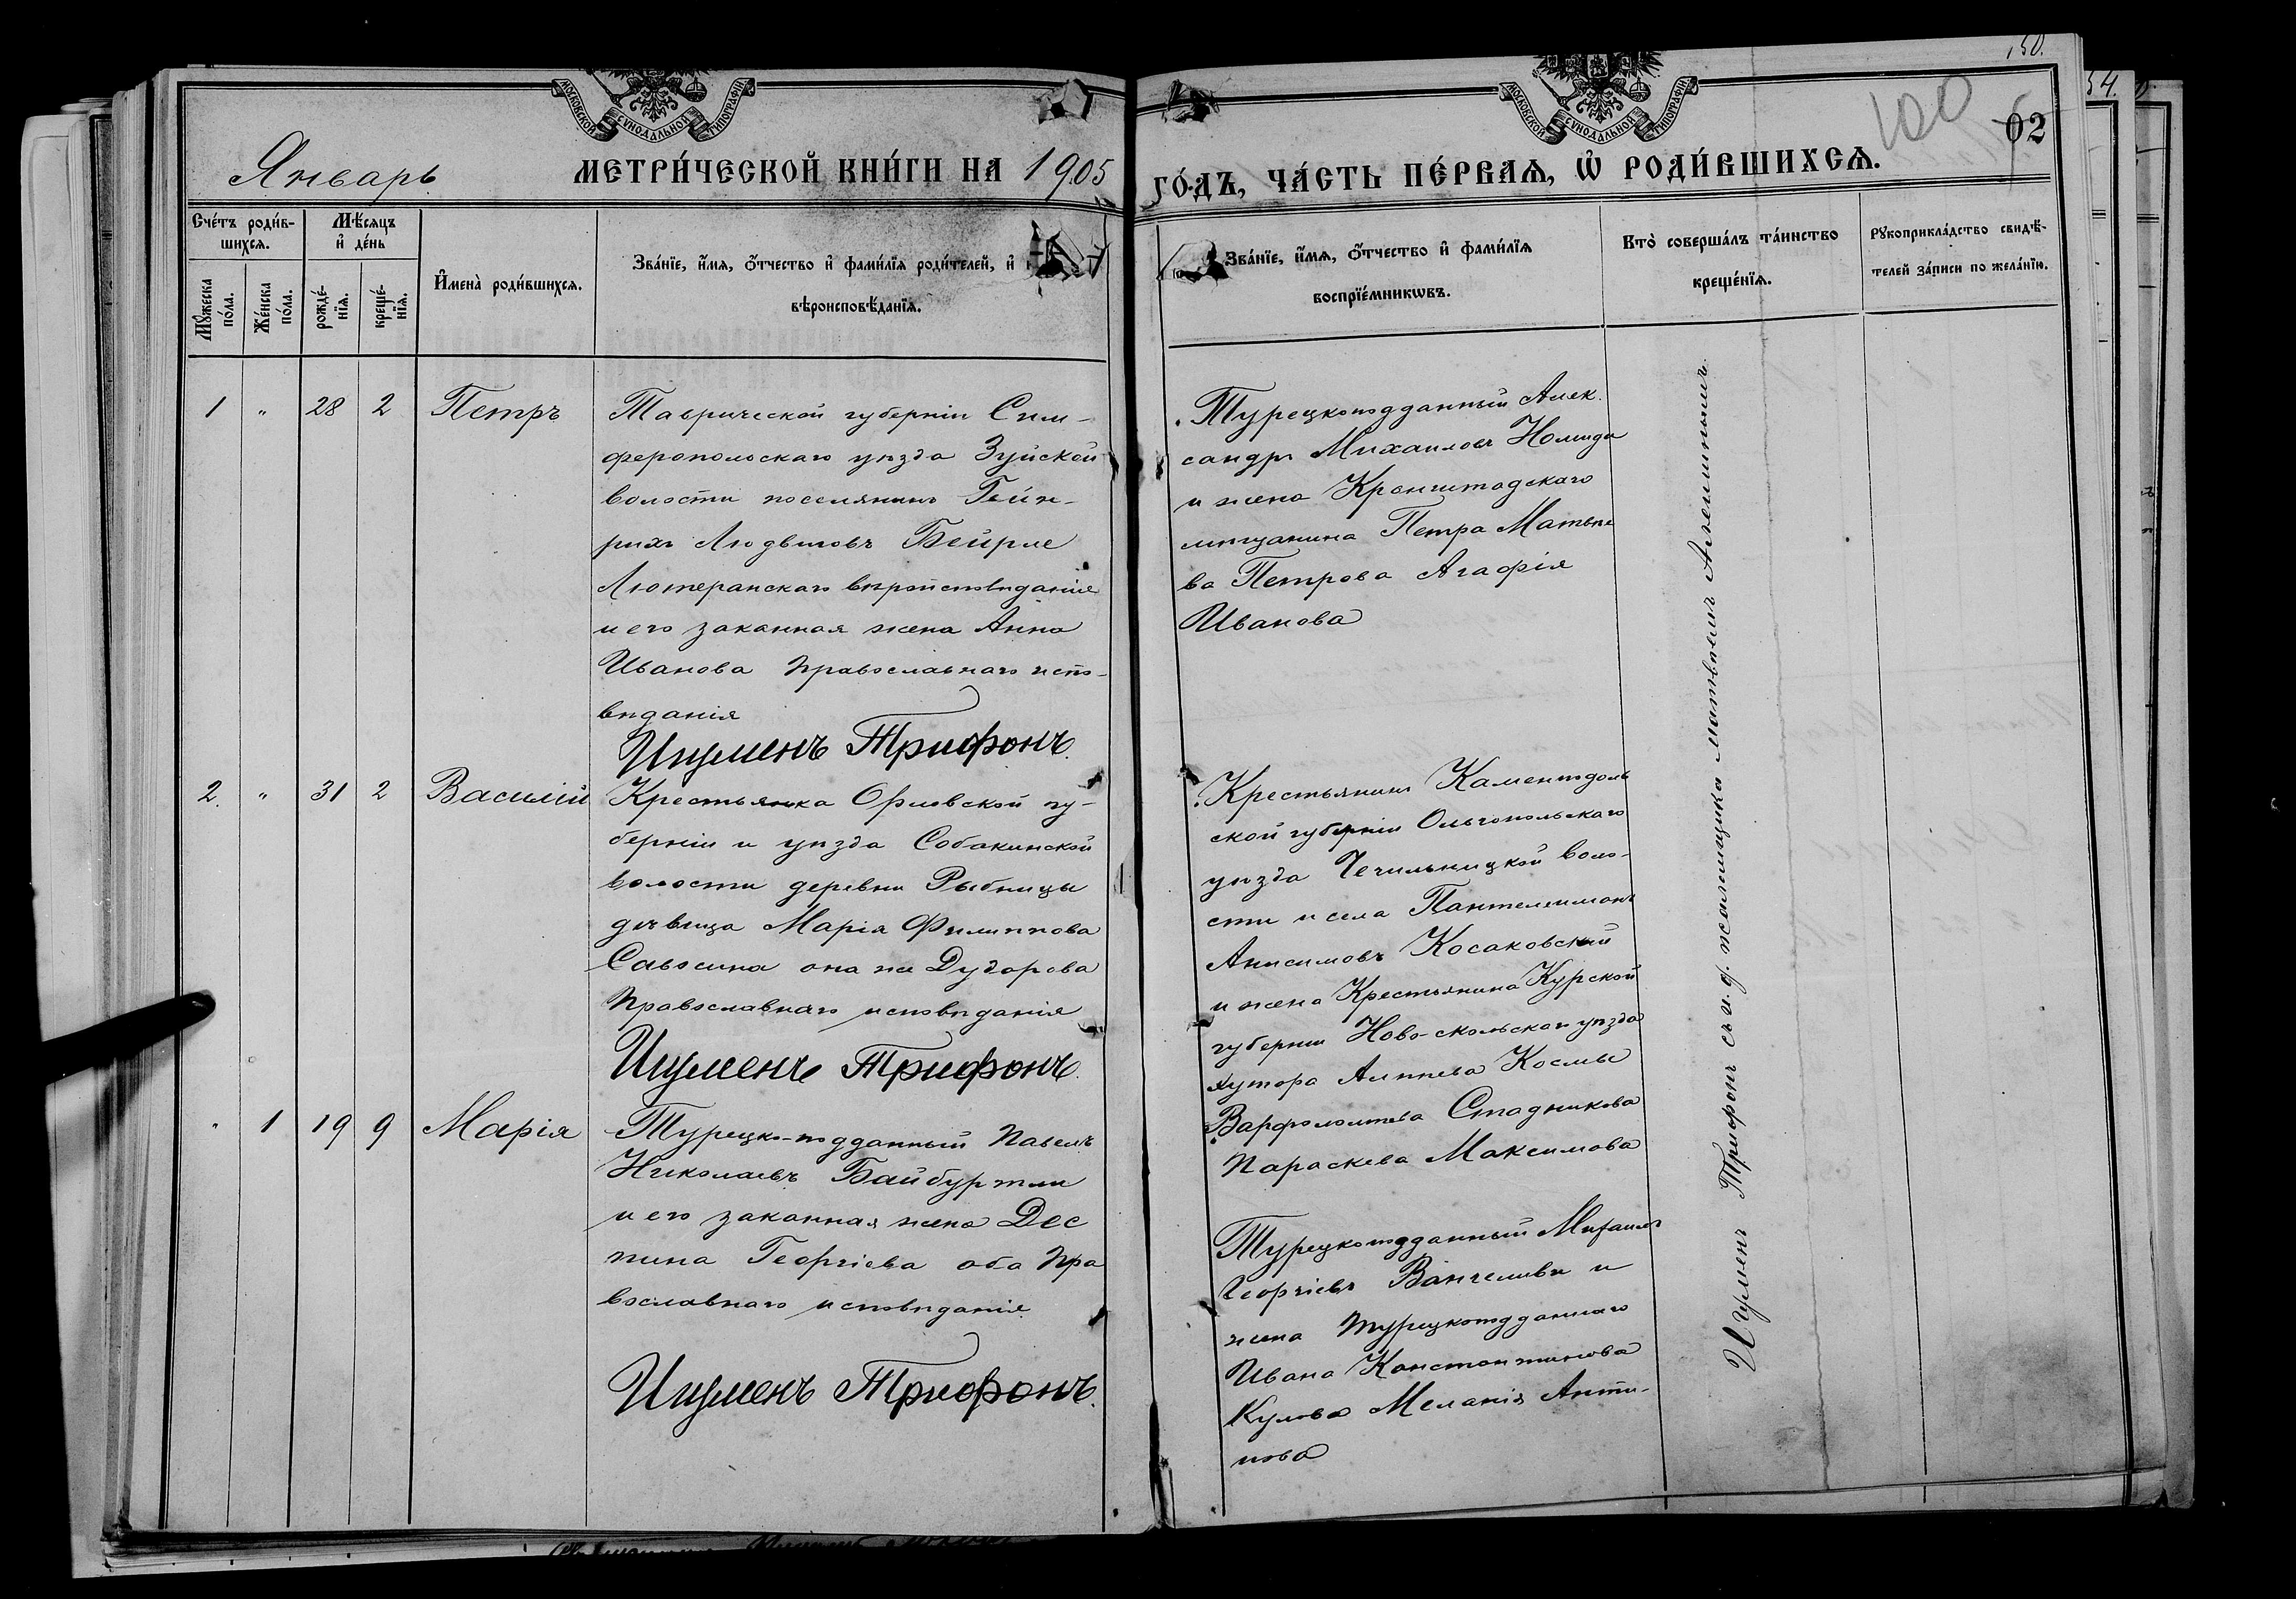 150.
100
62
54.
МОСКОВСКОЙ СУНОДАЛЬНОЙ ТИПОГРАФІИ.
МОСКОВСКОЙ СУНОДАЛЬНОЙ ТИПОГРАФІИ.
Январь МЕТРИ́ЧЕСКОЙ КНИ́ГИ НА 1905
ГО́ДЪ, ЧА́СТЬ ПЕ́РВАѦ, Ѡ҆ РОДИ́ВШИХСѦ.
Сче́тъ роди́в-
шихсѧ.
Мѣ́сѧцъ
и҆ де́нь
Мꙋ́жеска
по́ла.
Же́нска
по́ла.
рожде́-
нїѧ.
креще́-
нїѧ.
И҆мена̀ роди́вшихсѧ.
Зва́нїе, и҆́мѧ, ѻ҆́тчество и҆ фами́лїѧ роди́телей, и҆
вѣроисповѣ́данїѧ.
Зва́нїе, и҆́мѧ, ѻ҆́тчество и҆ фами́лїѧ
воспрїе́мникѡвъ.
Кто̀ соверша́лъ та́инство
креще́нїѧ.
Рꙋкоприкла́дство свидѣ́-
телей за́писи по жела́нїю.
1 " 28 2 Петръ
Таврической губерніи Сим-
феропольскаго уѣзда Зуйской
волости поселянинъ Гейн-
рихъ Людвиговъ Бейрле
Лютеранскаго вѣроисповѣданіе
и его заканная жена Анна
Иванова Православнаго испо-
вѣданія
Игуменъ Трифонъ.
Турецкоподданный Алек.
сандръ Михаиловъ
и жена Кронштадскаго
мѣщанина Петра Матвѣе
ва Петрова Агафія
Иванова
2. " 31 2 Василій
Крестьянка Орловской гу-
берніи и уѣзда Собакинской
волости деревни Рыбницы
дѣвица Марія Филиппова
Савосина она же Дударева
Православнаго исповѣданія
Игуменъ Трифонъ.
Крестьянинъ Каментодоль
ской губерніи Ольгопольскаго
уѣзда Чечильницкой воло-
сти и села Пантелеимонъ
Анисимовъ Косаковскій
и жена Крестьянина Курской
губерніи Ново-скольскаго уѣзда
хутора Космы
Варфоломѣева Стадникова
Параскева Максимова
" 1 19 9 Марія
Турецко-подданный Павелъ
Николаевъ Байбуртли
и его заканная жена Дес
пина Георгіева оба Пра
вославнаго исповѣданія.
Игуменъ Трифонъ.
Турецкоподданный Михаилъ
Георгіевъ и
жена турецкоподданнаго
Ивана Константинова
Кулова Меланія Анти-
пова
Игуменъ Трифонъ съ и. д. псаломщика